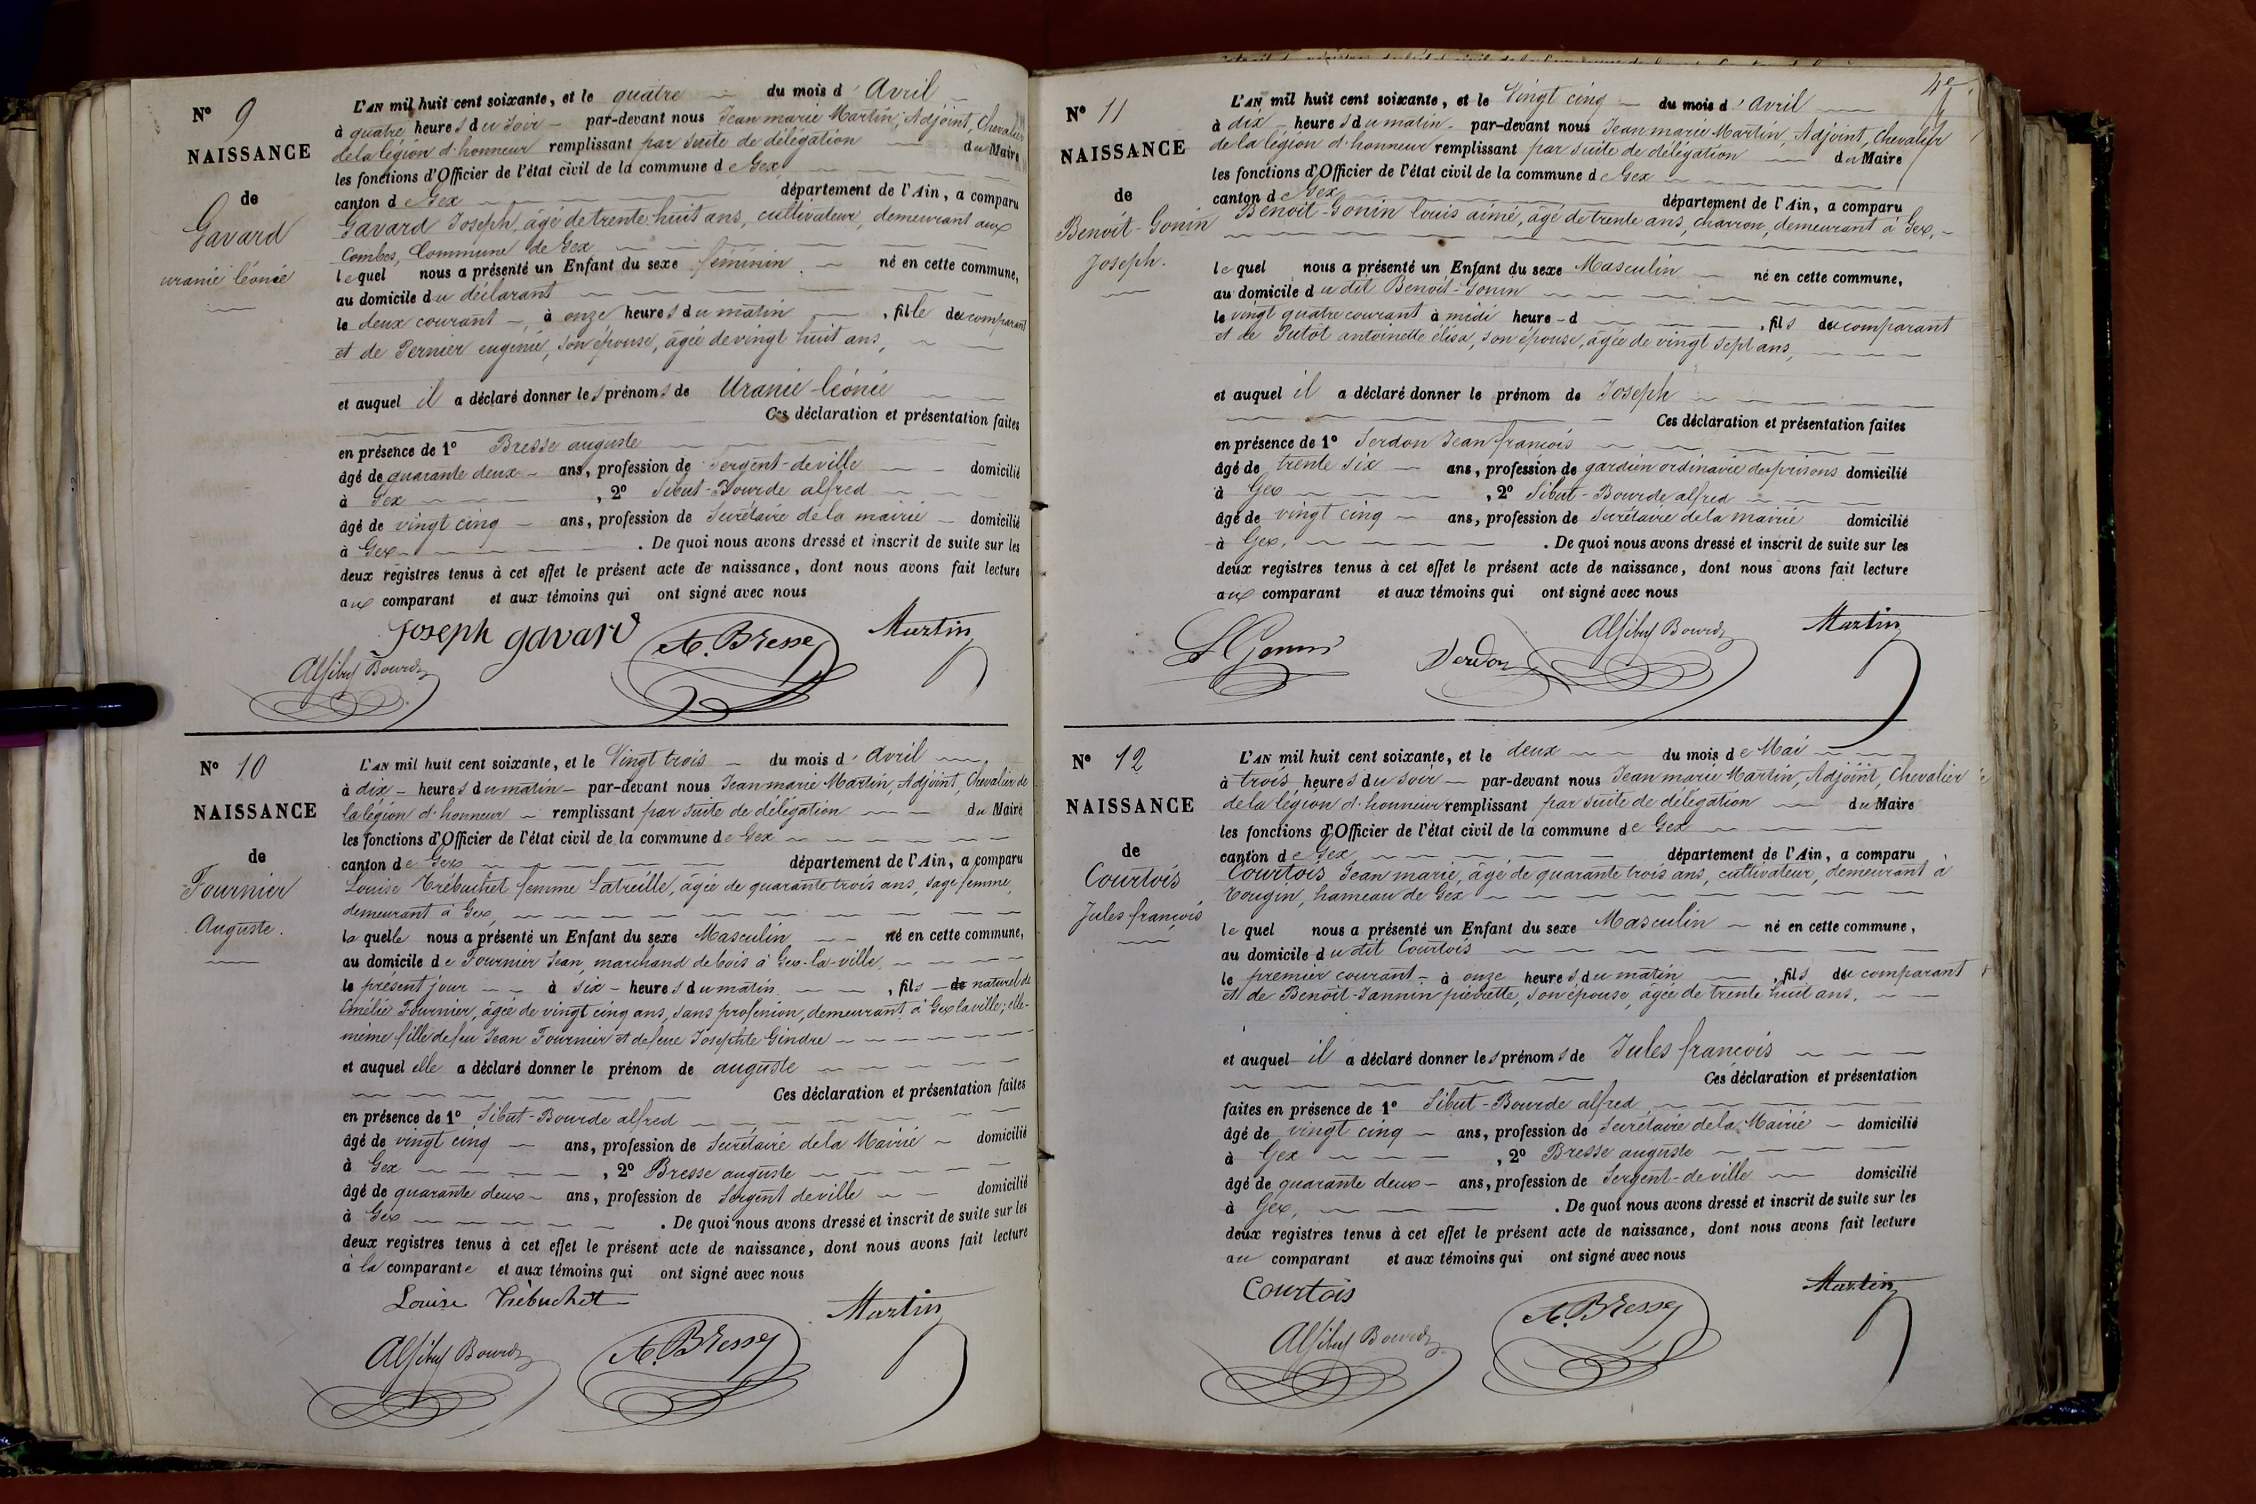 Nº 9
NAISSANCE
de
Gavard
uranie léonie
L'AN mil huit cent soixante, et le quatre du mois d'Avril
à quatre heures du soir par-devant nous Jean marie Martin, Adjoint, Chevalier
de la légion d'honneur remplissant par suite de délégation du Maire
les fonctions d'Officier de l'état civil de la commune de Gex
canton de Gex département de l'Ain, a comparu
Gavard Joseph, âgé de trente huit ans, cultivateur, demeurant aux
Combes, Commune de Gex
lequel nous a présenté un Enfant du sexe féminin né en cette commune,
au domicile du déclarant
le deux courant à onze heures du matin, fille du comparant
et de Pernier eugénie, son épouse, âgée de vingt huit ans,
et auquel il a déclaré donner les prénoms de Uranie léonie
Ces déclaration et présentation faites
en présence de 1º Bresse auguste
âgé de quarante deux ans, profession de Sergent-de ville domicilié
à Gex, 2º Sibut-Bourde alfred
âgé de vingt cinq ans, profession de Secrétaire de la mairie domicilié
à Gex. De quoi nous avons dressé et inscrit de suite sur les
deux registres tenus à cet effet le présent acte de naissance, dont nous avons fait lecture
aux comparant et aux témoins qui ont signé avec nous
Joseph gavard A. Bresse Martin
Alf Sibut Bourde
Nº 10
NAISSANCE
de
Fournier
Auguste.
L'AN mil huit cent soixante, et le Vingt trois du mois d'avril
à dix heures du matin par-devant nous Jean marie Martin, Adjoint, Chevalier de
la légion d'honneur remplissant par suite de délégation du Maire
les fonctions d'Officier de l'état civil de la commune de Gex
canton de Gex département de l'Ain, a comparu
Louise Trébuchet femme Latreille, âgée de quarante trois ans, sage femme,
demeurant à Gex,
laquelle nous a présenté un Enfant du sexe Masculin né en cette commune,
au domicile de Fournier Jean, marchand de bois à Gex-la-ville
le présent jour à six heures du matin, fils de naturel de
Amélie Fournier, âgée de vingt cinq ans, sans profession, demeurant à Gex la ville; elle-
même fille de feu Jean Fournier et de feue Josephte Gindre
et auquel elle a déclaré donner le prénom de auguste
Ces déclaration et présentation faites
en présence de 1º Sibut-Bourde alfred
âgé de vingt cinq ans, profession de Secrétaire de la Mairie domicilié
à Gex, 2º Bresse auguste
âgé de quarante deux ans, profession de Sergent de ville domicilié
à Gex. De quoi nous avons dressé et inscrit de suite sur les
deux registres tenus à cet effet le présent acte de naissance, dont nous avons fait lecture
à la comparante et aux témoins qui ont signé avec nous
Louise Trébuchet Martin
Alf Sibut Bourde A. Bresse
Nº 11
NAISSANCE
de
Benoit-Gonin
Joseph.
L'AN mil huit cent soixante, et le Vingt cinq du mois d'avril
à dix heures du matin par-devant nous Jean marie Martin, Adjoint, Chevalier
de la légion d'honneur remplissant par suite de délégation du Maire
les fonctions d'Officier de l'état civil de la commune de Gex
canton de Gex département de l'Ain, a comparu
Benoit-Gonin louis aimé, âgé de trente ans, charron, demeurant à Gex,
lequel nous a présenté un Enfant du sexe Masculin né en cette commune,
au domicile du dit Benoit-Gonin
le vingt quatre courant à midi heure d, fils du comparant
et de Putôt antoinette élisa, son épouse, âgée de vingt sept ans,
et auquel il a déclaré donner le prénom de Joseph
Ces déclaration et présentation faites
en présence de 1º Serdon Jean françois
âgé de trente six ans, profession de gardien ordinaire des prisons domicilié
à Gex, 2º Sibut-Bourde alfred
âgé de vingt cinq ans, profession de Secrétaire de la mairie domicilié
à Gex. De quoi nous avons dressé et inscrit de suite sur les
deux registres tenus à cet effet le présent acte de naissance, dont nous avons fait lecture
aux comparant et aux témoins qui ont signé avec nous
Gonin Serdon Alf Sibut Bourde Martin
Nº 12
NAISSANCE
de
Courtois
Jules françois
L'AN mil huit cent soixante, et le deux du mois de Mai
à trois heures du soir par-devant nous Jean marie Martin, Adjoint, Chevalier
de la légion d'honneur remplissant par suite de délégation du Maire
les fonctions d'Officier de l'état civil de la commune de Gex
canton de Gex département de l'Ain, a comparu
Courtois Jean marie, âgé de quarante trois ans, cultivateur, demeurant à
Tougin, hameau de Gex
lequel nous a présenté un Enfant du sexe Masculin né en cette commune,
au domicile du dit Courtois
le premier courant à onze heures du matin, fils du comparant
et de Benoit-Jannin pierrette, son épouse, âgée de trente huit ans.
et auquel il a déclaré donner les prénoms de Jules francois
Ces déclaration et présentation
faites en présence de 1º Sibut-Bourde alfred
âgé de vingt cinq ans, profession de Secrétaire de la Mairie domicilié
à Gex, 2º Bresse auguste
âgé de quarante deux ans, profession de Sergent-de ville domicilié
à Gex. De quoi nous avons dressé et inscrit de suite sur les
deux registres tenus à cet effet le présent acte de naissance, dont nous avons fait lecture
au comparant et aux témoins qui ont signé avec nous
Courtois A. Bresse Martin
Alf Sibut Bourde